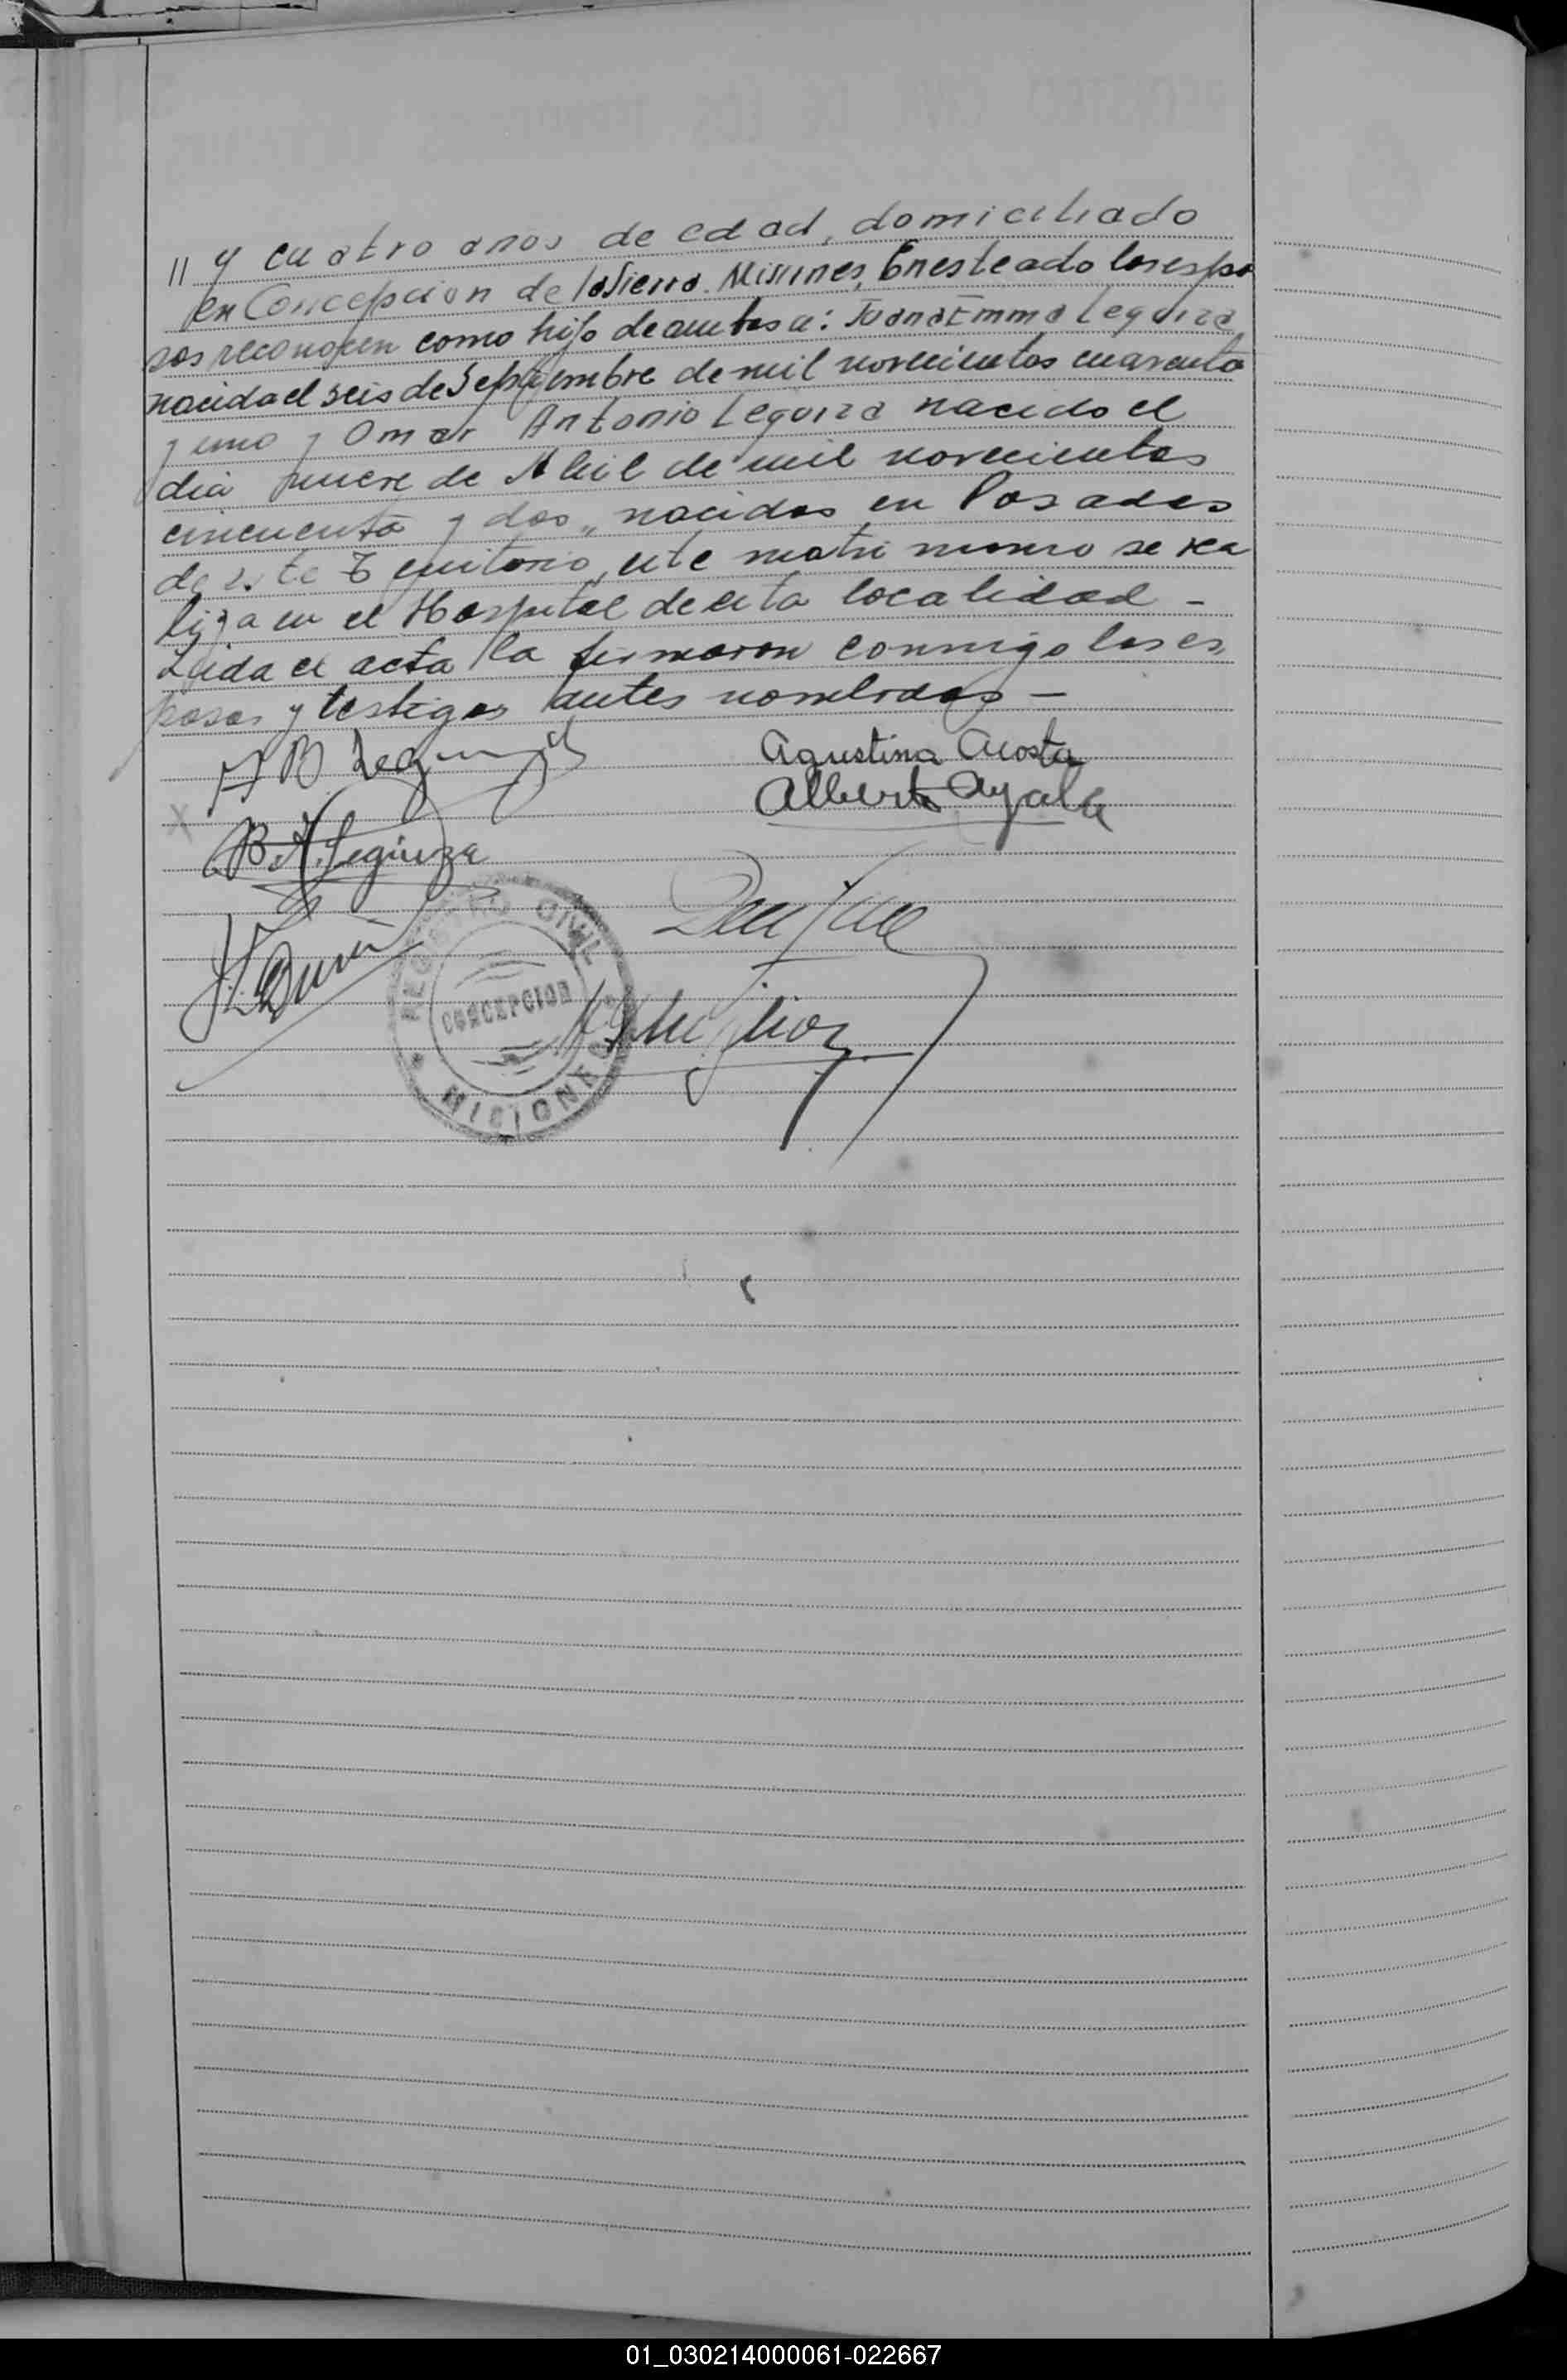 // y cuatro anos de edad, domiciliado
en Concepcion de la Sierra. Misiones, En este ado los espo
sos reconocen como hijo de ambos a: Juana Emma Leguiza,
nacida el seis de Septiembre de mil novecientos cuarenta
y uno y Omar Antonio Leguiza nacido el
dia nueve de Abril de mil novecientos
cincuenta y dos, nacidos en Posadas
de este Territorio, este matrimonio se rea
liza en el Hospital de esta localidad -
Leida el acta la firmaron conmigo los es,
posos y testigos antes nombrados -
A B Leguiza
Agustina Acosta
Alberto Ayala
B. A. Leguiza
REGISTRO CIVIL
CONCEPCION
MISIONES
01_030214000061-022667